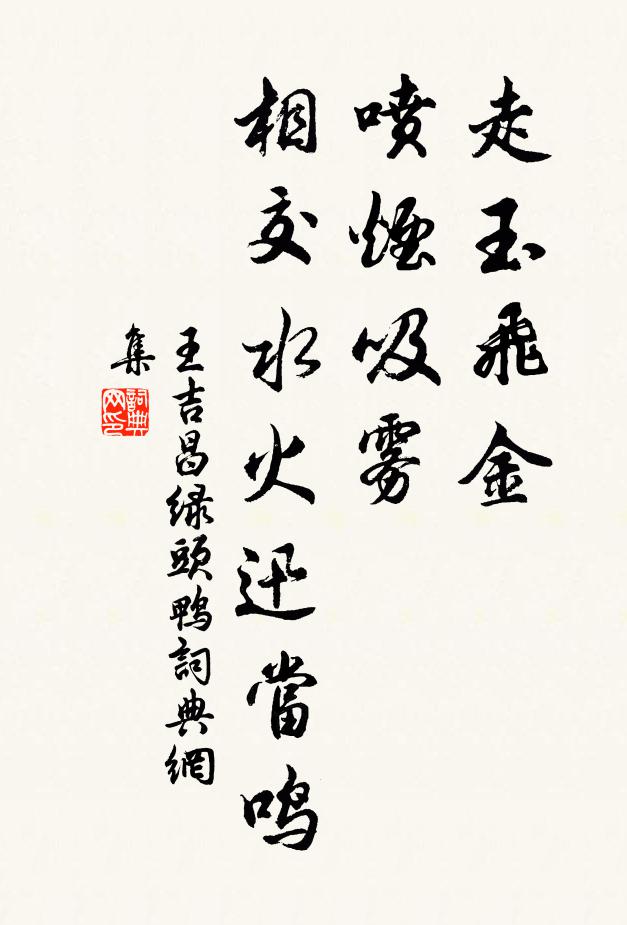 走玉飛金
噴煙吸雾
相交水火迅當鸣
王吉昌緑頭鴨詞典網
集
詞典
网印